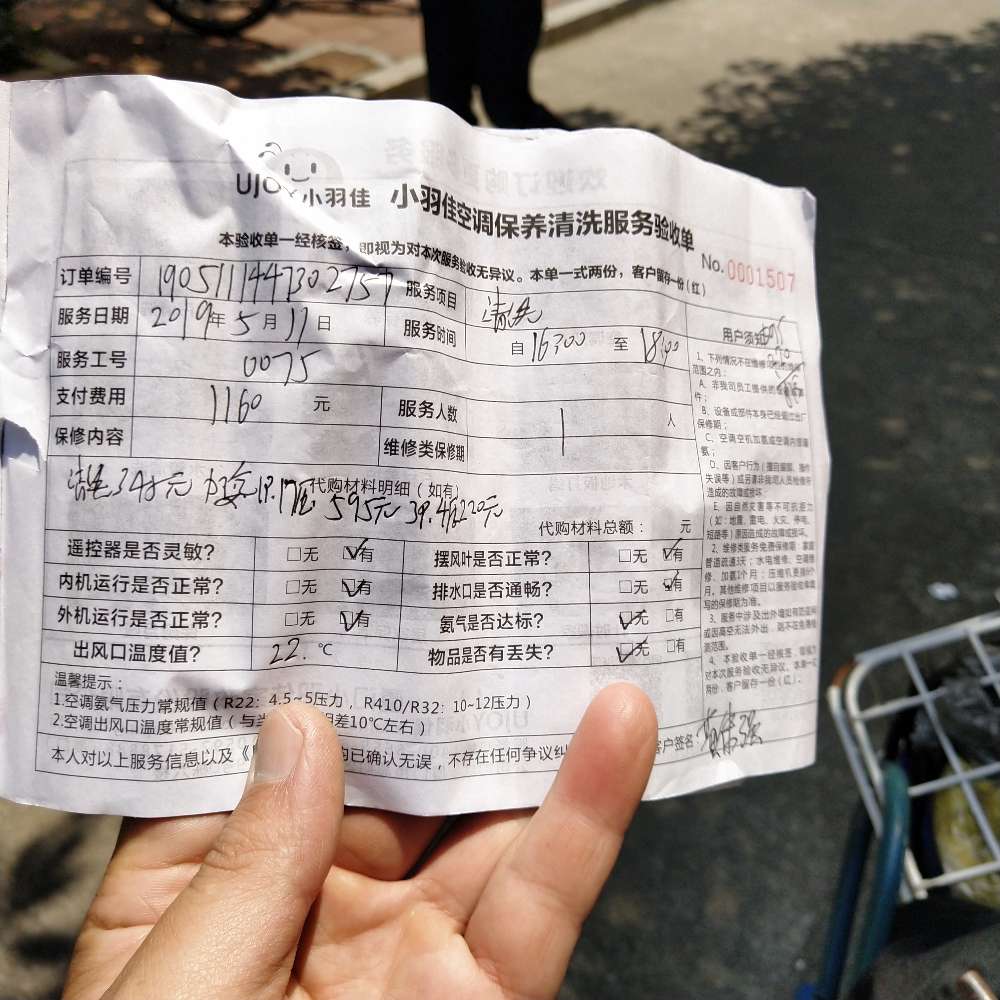 UJOY小羽佳 小羽佳空调保养清洗服务验收单
本验收单一经核签，即视为对本次服务验收无异议。本单一式两份，客户留存一份（红）
No.0001507
订单编号 190511144730275 服务项目 清洗
服务日期 2019年5月11日 服务时间 自16:00 至 18:00
服务工号 0075
支付费用 1160 元 服务人数 1 人
保修内容 维修类保修期
代购材料明细（如有）
清洗345元 595元 220元
代购材料总额： 元
遥控器是否灵敏？ □无 ☑有 摆风叶是否正常？ □无 ☑有
内机运行是否正常？ □无 ☑有 排水口是否通畅？ □无 ☑有
外机运行是否正常？ □无 ☑有 氨气是否达标？ ☑无 □有
出风口温度值？ 22.℃ 物品是否有丢失？ ☑无 □有
温馨提示：
1.空调氨气压力常规值（R22：4.5~5压力，R410/R32：10~12压力）
2.空调出风口温度常规值（与当 差10℃左右）
本人对以上服务信息以及《 均已确认无误，不存在任何争议纠 客户签名
用户须知
1、下列情况不在维修
范围之内：
A、非我司员工提供的
件；
B、设备或部件本身已经超出厂
保修期；
C、空调空机加氨或空调内
氨；
D、因客户行为（擅自 操作
失误等）或另请非我司人员检修所
造成的故障或损坏
E、因自然灾害等不可抗拒力
（如：地震、雷电、火灾、停电、
短路等）原因造成的故障或损坏。
2、维修类服务免费保修期：家庭
管道疏通3天；水电维修、空调维
修、加氨1个月；压缩机更换
月，其他维修项目以服务验收单填
写的保修期为准。
3、服务中涉及出外墙如有防盗网
或因高空无法外出，则不在
范围。
4、本验收单一经核签，即视为
对本次服务验收无异议。本单一式
两份，客户留存一份（红）。